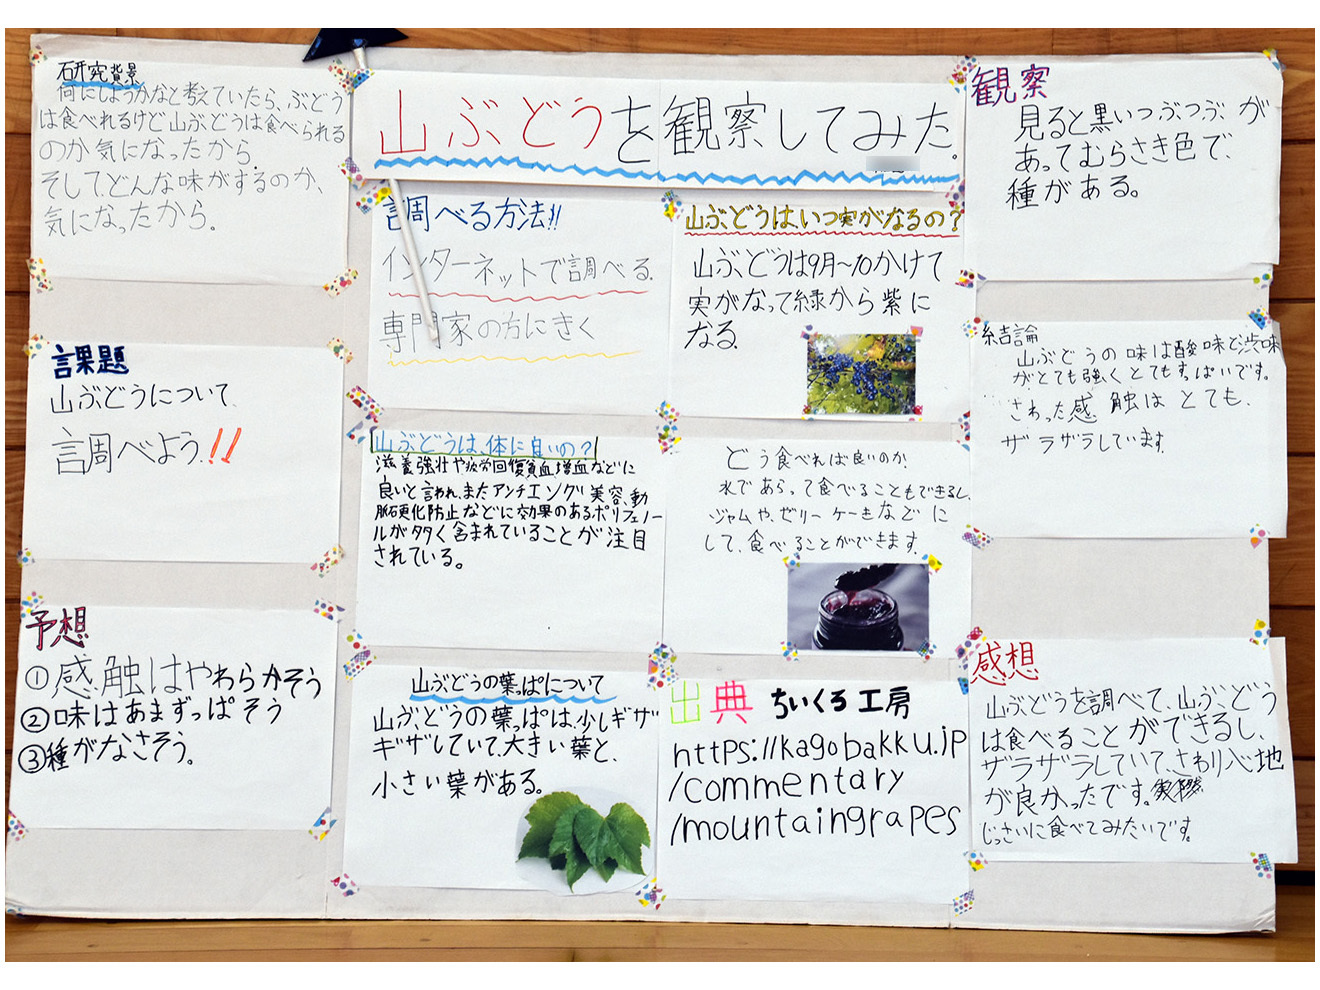 山ぶどうを観察してみた。
研究背景
何にしようかなと考えていたら、ぶどう
は食べれるけど山ぶどうは食べられる
のか気になったから.
そして、どんな味がするのか、
気になったから。
課題
山ぶどうについて
調べよう!!
予想
①感触はやわらかそう
②味はあまずっぱそう
③種がなさそう。
調べる方法!!
インターネットで調べる.
専門家の方にきく
山ぶどうは、いつ実がなるの?
山ぶどうは9月〜10かけて
実がなって緑から紫に
なる.
山ぶどうは、体に良いの?
滋養強壮や疲労回復貧血、増血などに
良いと言われ、またアンチエングリ美容、動
脈硬化防止などに効果のあるポリフェノー
ルが多く含まれていることが注目
されている。
どう食べれば良いのか
水であらって食べることもできるし、
ジャムや、ゼリー ケーキなどに
して、食べることができます。
山ぶどうの葉っぱについて
山ぶどうの葉っぱは、少しギザ
ギザしていて、大きい葉と、
小さい葉がある。
出典 ちいくろ工房
https://kagobakku.jp
/commentary
/mountaingrapes
観察
見ると黒いつぶつぶが
あってむらさき色で、
種がある。
結論
山ぶどうの味は酸味と渋味
がとても強くとてもすっぱいです。
さわった感触はとても、
ザラザラしています.
感想
山ぶどうを調べて、山ぶどう
は食べることができるし、
ザラザラしていて、さわり心地
が良かったです。
じっさいに食べてみたいです。